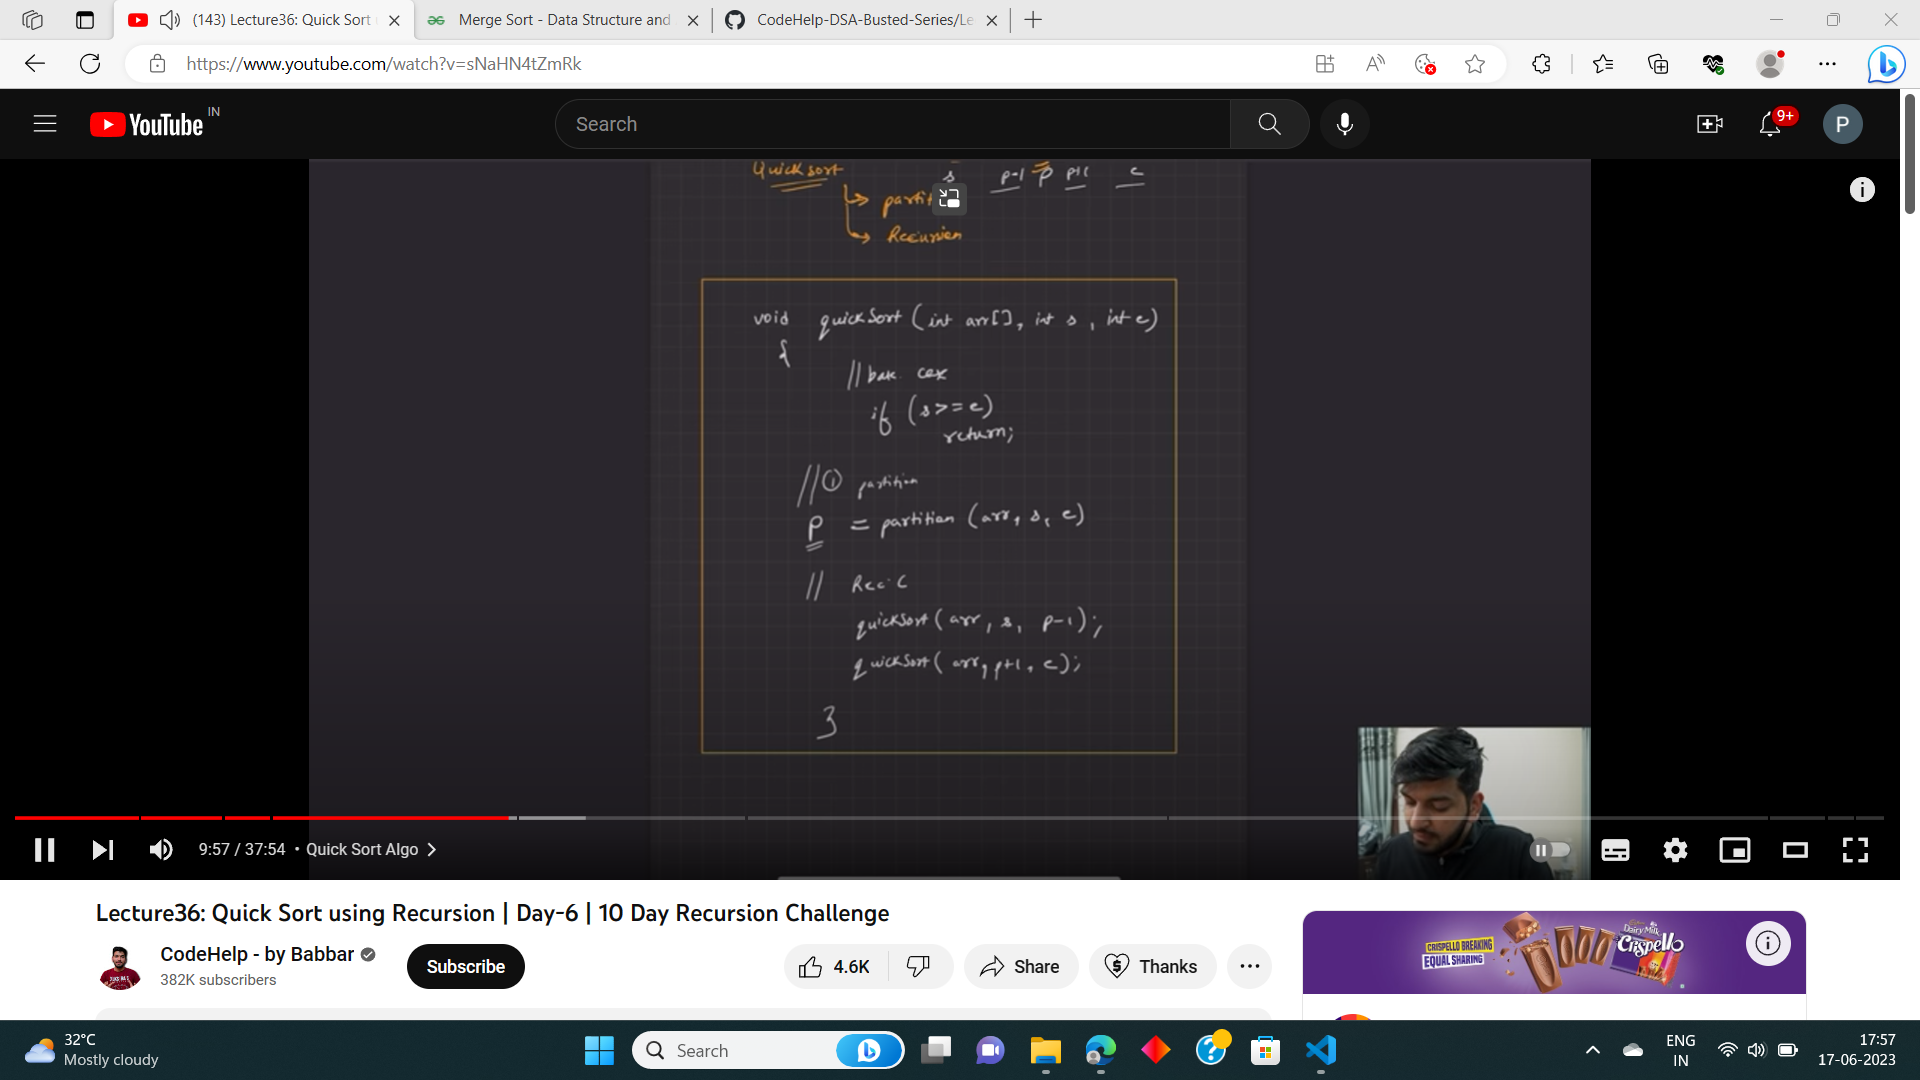 (143) Lecture36: Quick Sort
Merge Sort - Data Structure and
CodeHelp-DSA-Busted-Series/Le
https://www.youtube.com/watch?v=sNaHN4tZmRk
YouTube IN
Search
9+
P
Quicksort
s p-1 p p+1 e
partiti
Recursion
void quickSort (int arr[], int s, int e)
{
// base case
if (s>=e)
return;
// ① partition
p = partition (arr, s, e)
// Rec. C
quickSort (arr, s, p-1);
quickSort (arr, p+1, e);
}
9:57 / 37:54 • Quick Sort Algo
Lecture36: Quick Sort using Recursion | Day-6 | 10 Day Recursion Challenge
CodeHelp - by Babbar
382K subscribers
Subscribe
4.6K
Share
Thanks
CRISPELLO BREAKING
EQUAL SHARING
Dairy Milk
Crispello
32°C
Mostly cloudy
Search
ENG
IN
17:57
17-06-2023